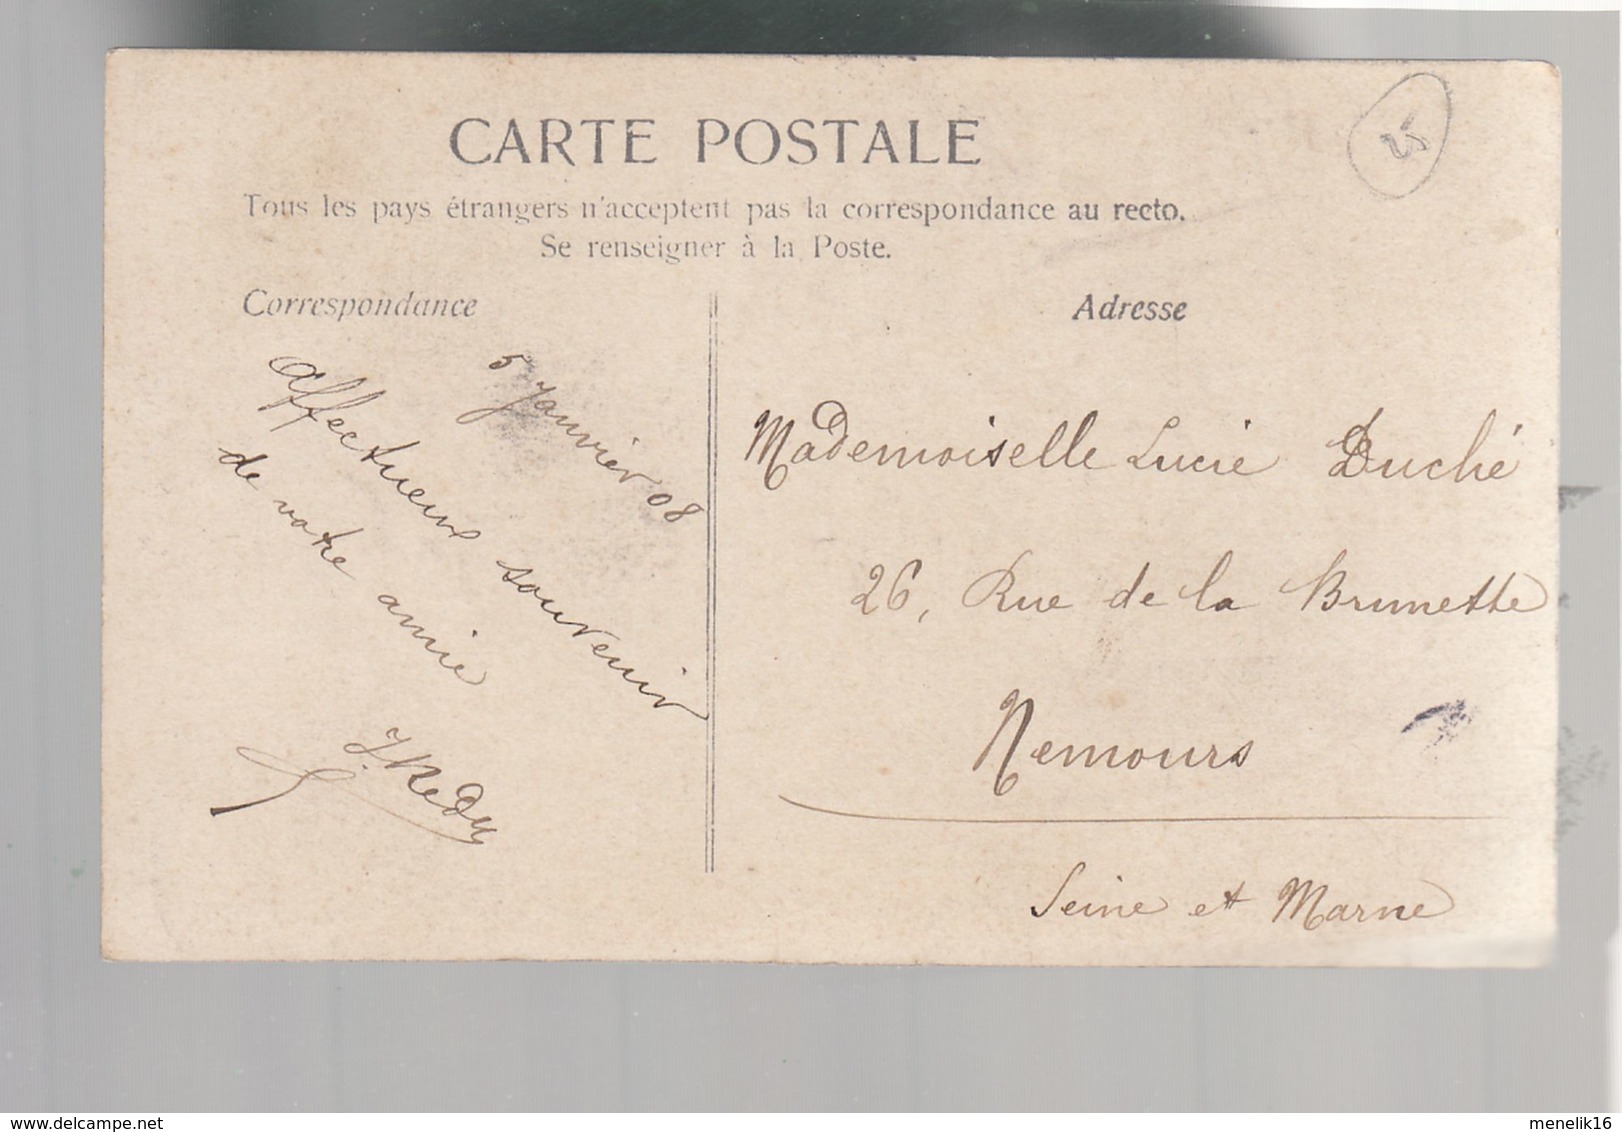 CARTE POSTALE
25
Tous les pays étrangers n'acceptent pas la correspondance au recto.
Se renseigner à la Poste.
Correspondance
Adresse
5 Janvier 08
Affectueux souvenir
de votre amie
Mademoiselle Lucie Duché
26, Rue de la Brunette
Nemours
Seine et Marne
menelik16